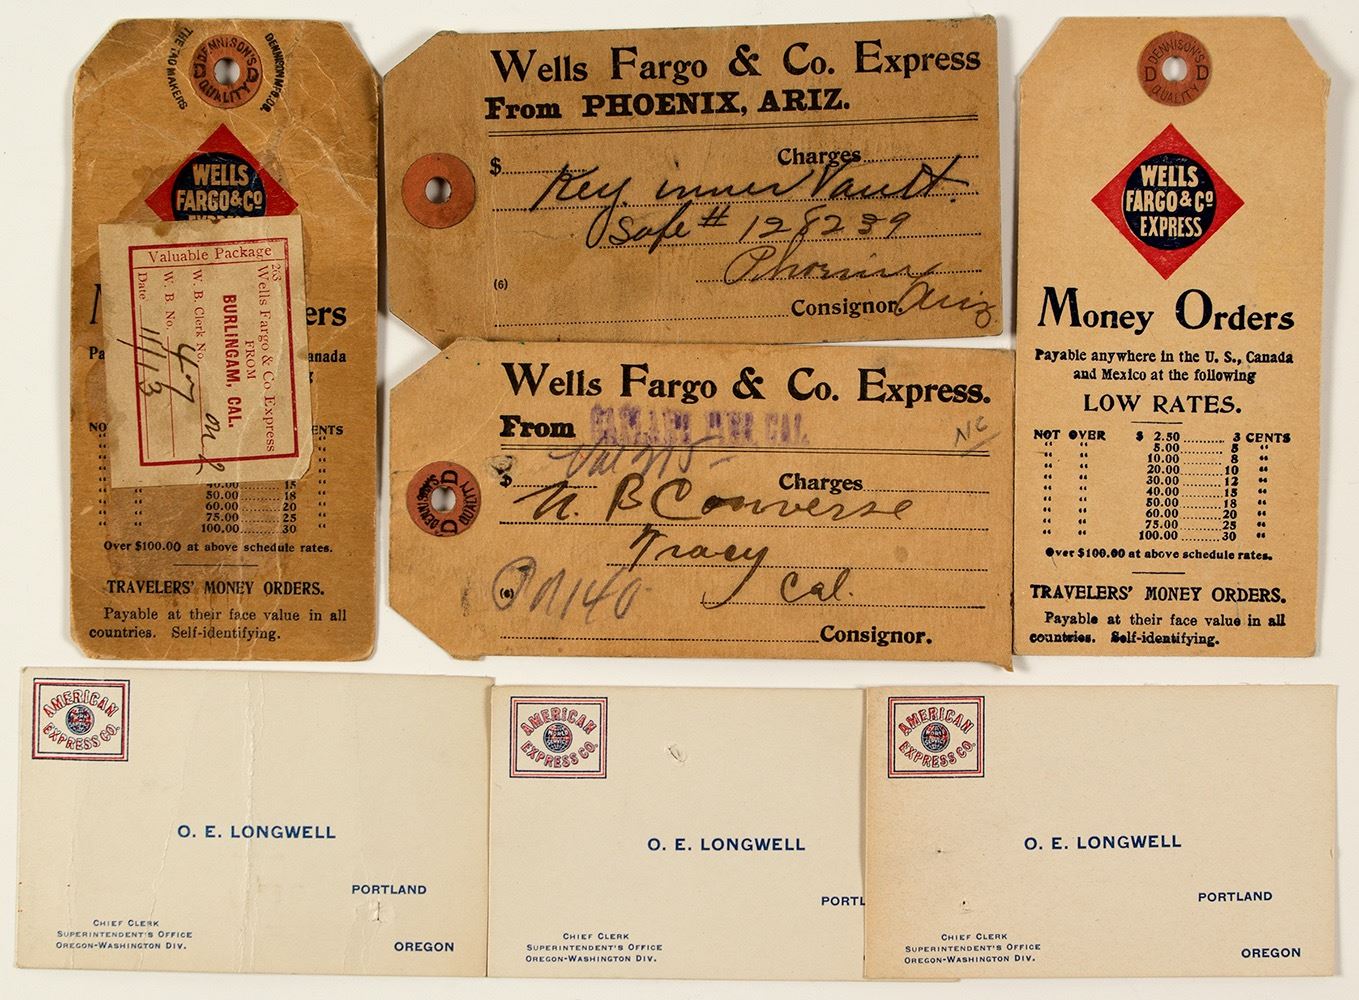 DENNISON'S
QUALITY
THE TAG MAKERS
DENNISON MFG. CO.
WELLS
FARGO & Co
EXPRESS
ers
Pa
anada
NO
ENTS
Valuable Package
263
Wells Fargo & Co Express
FROM
BURLINGAM, CAL.
W. B. Clerk No.
W. B. No. 47
Date 11/13
40.00 15 "
50.00 18 "
60.00 20 "
75.00 25 "
100.00 30 "
Over $100.00 at above schedule rates.
TRAVELERS' MONEY ORDERS.
Payable at their face value in all
countries. Self-identifying.
Wells Fargo & Co. Express
From PHOENIX, ARIZ.
$ Charges
Key inner Vault
Safe # 128239
Phoenix
(6)
Consignor. Ariz
Wells Fargo & Co. Express.
From CAL.
NC
$ Charges
N. B Converse
Tracy
Cal.
(6)
Consignor.
DENNISON'S
QUALITY
DENNISON'S
D D
QUALITY
WELLS
FARGO & Co
EXPRESS
Money Orders
Payable anywhere in the U. S., Canada
and Mexico at the following
LOW RATES.
NOT OVER $ 2.50 3 CENTS
" " 5.00 5 "
" " 10.00 8 "
" " 20.00 10 "
" " 30.00 12 "
" " 40.00 15 "
" " 50.00 18 "
" " 60.00 20 "
" " 75.00 25 "
" " 100.00 30 "
Over $100.00 at above schedule rates.
TRAVELERS' MONEY ORDERS.
Payable at their face value in all
countries. Self-identifying.
AMERICAN
EXPRESS CO.
O. E. LONGWELL
PORTLAND
CHIEF CLERK
SUPERINTENDENT'S OFFICE
OREGON-WASHINGTON DIV.
OREGON
AMERICAN
EXPRESS CO.
O. E. LONGWELL
PORTL
CHIEF CLERK
SUPERINTENDENT'S OFFICE
OREGON-WASHINGTON DIV.
AMERICAN
EXPRESS CO.
O. E. LONGWELL
PORTLAND
CHIEF CLERK
SUPERINTENDENT'S OFFICE
OREGON-WASHINGTON DIV.
OREGON